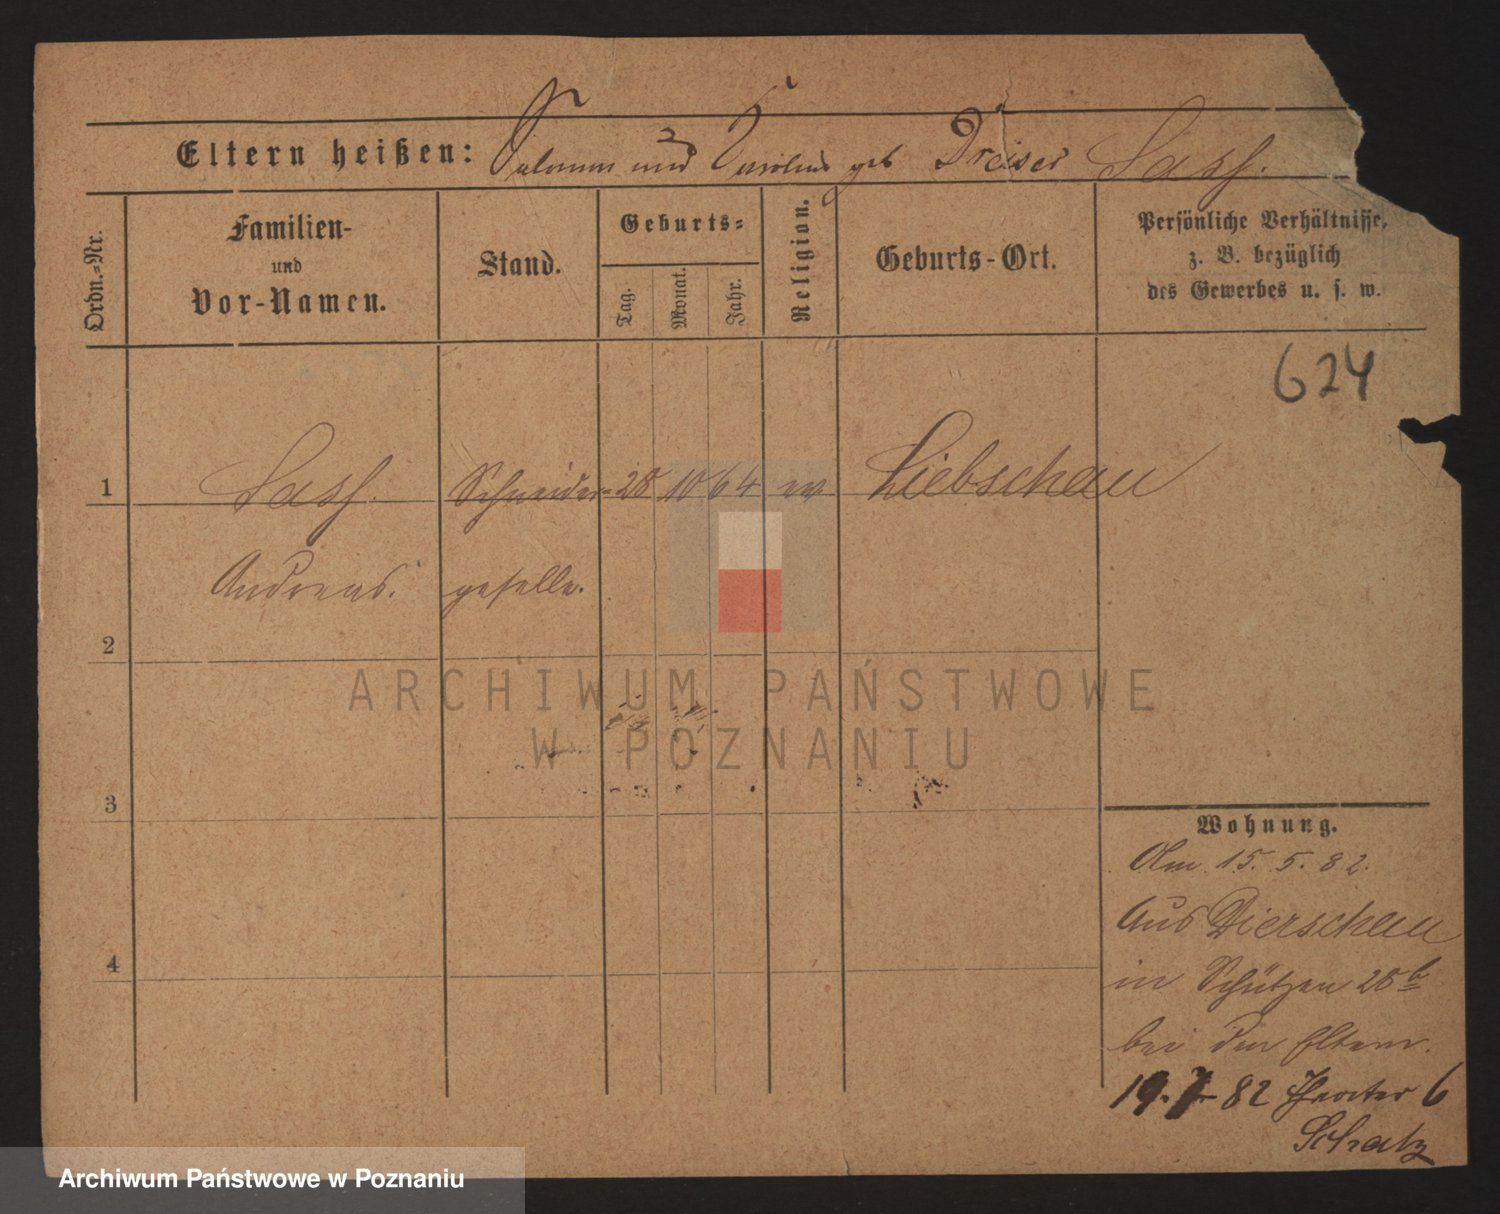 Eltern heißen: Salomon und Caroline geb Dreiser Sass.
Ordn.-Nr.
Familien-
und
Vor-Namen.
Stand.
Geburts-
Tag.
Monat.
Jahr.
Religion.
Geburts-Ort.
Persönliche Verhältnisse,
z. B. bezüglich
des Gewerbes u. s. w.
624
1 Sass. Schneider- 28 10 64 ev Liebschau
Andreas. geselle.
2
ARCHIWUM PAŃSTWOWE
W POZNANIU
3
4
Wohnung.
Am 15. 5. 82.
Aus Dierschau
in Schützen 28b
bei den Eltern.
19. 7 82 Theater 6
Schatz
Archiwum Państwowe w Poznaniu